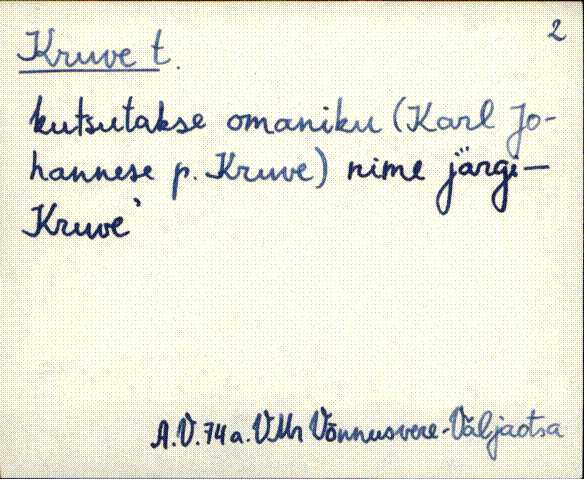 2
Kruve t.
kutsutakse omaniku (Karl Jo-
hannese p. Kruve) nime järgi—
Kruve`
A.V. 74 a. VMr Võnnusvere-Väljaotsa